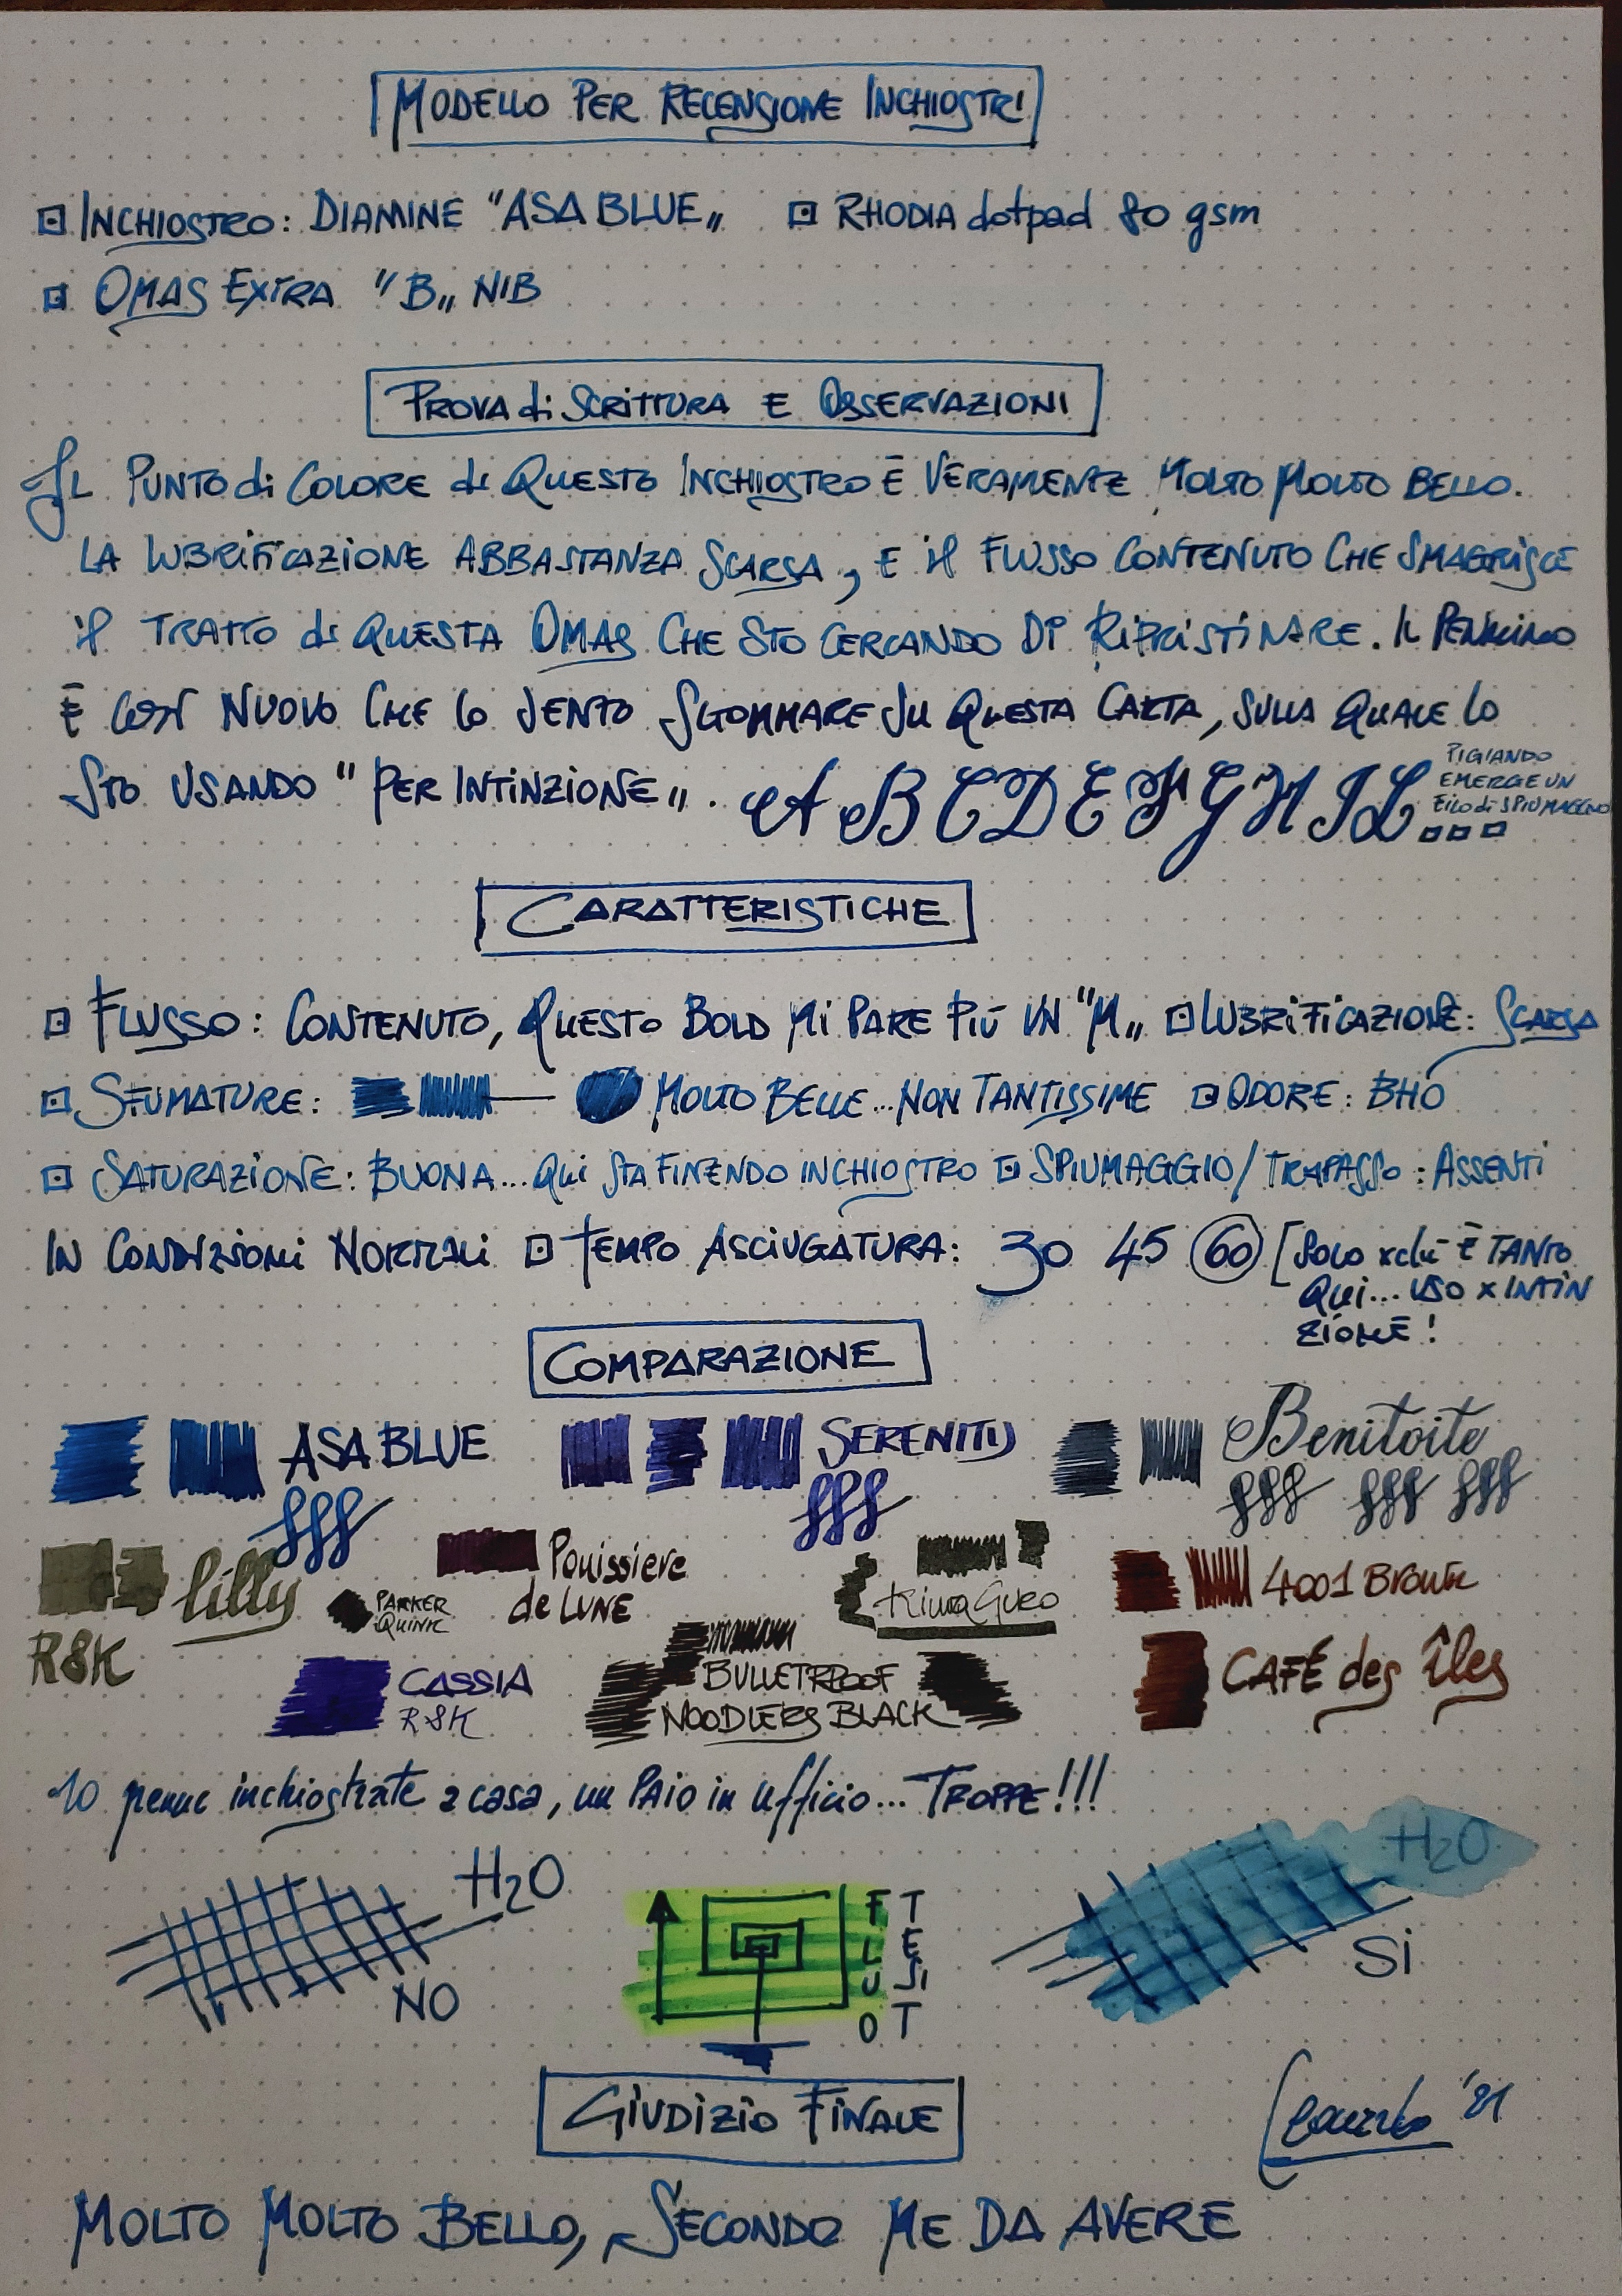 MODELLO PER RECENSIONE INCHIOSTRI
INCHIOSTRO: DIAMINE "ASA BLUE„ RHODIA dotpad 80 gsm
OMAS EXTRA "B„ NIB
PROVA di SCRITTURA E OSSERVAZIONI
IL PUNTO di COLORE di QUESTO INCHIOSTRO È VERAMENTE MOLTO MOLTO BELLO.
LA LUBRIFICAZIONE ABBASTANZA SCARSA, E il FLUSSO CONTENUTO CHE SMAGRISCE
il TRATTO di QUESTA OMAS CHE STO CERCANDO DI RIPRISTINARE. IL PENNINO
È COSÌ NUOVO CHE LO SENTO SGOMMARE SU QUESTA CARTA, SULLA QUALE LO
STO USANDO "PER INTINZIONE„. A B C D E F G H I L
PIGIANDO
EMERGE UN
FILO di SPIUMAGGIO
CARATTERISTICHE
FLUSSO: CONTENUTO, QUESTO BOLD MI PARE PIÙ UN "M„ LUBRIFICAZIONE: SCARSA
SFUMATURE: MOLTO BELLE...NON TANTISSIME ODORE: BHO
SATURAZIONE: BUONA...QUI STA FINENDO INCHIOSTRO SPIUMAGGIO/TRAPASSO: ASSENTI
IN CONDIZIONI NORMALI TEMPO ASCIUGATURA: 30 45 60 [SOLO xchè È TANTO
QUI... USO x INTIN
ZIONE!
COMPARAZIONE
ASA BLUE SERENITY Benitoite
Lilly
R&K
PARKER
QUINK
Pouissiere
de LUNE
KiwaGuro
4001 BROWN
CASSIA
R&K
BULLETPROOF
NOODLERS BLACK
CAFÉ des îles
10 penne inchiostrate a casa, un PAIO in ufficio... TROPPE!!!
H2O
NO
FLUO
TEST
H2O
SI
GIUDIZIO FINALE
'21
MOLTO MOLTO BELLO, SECONDO ME DA AVERE